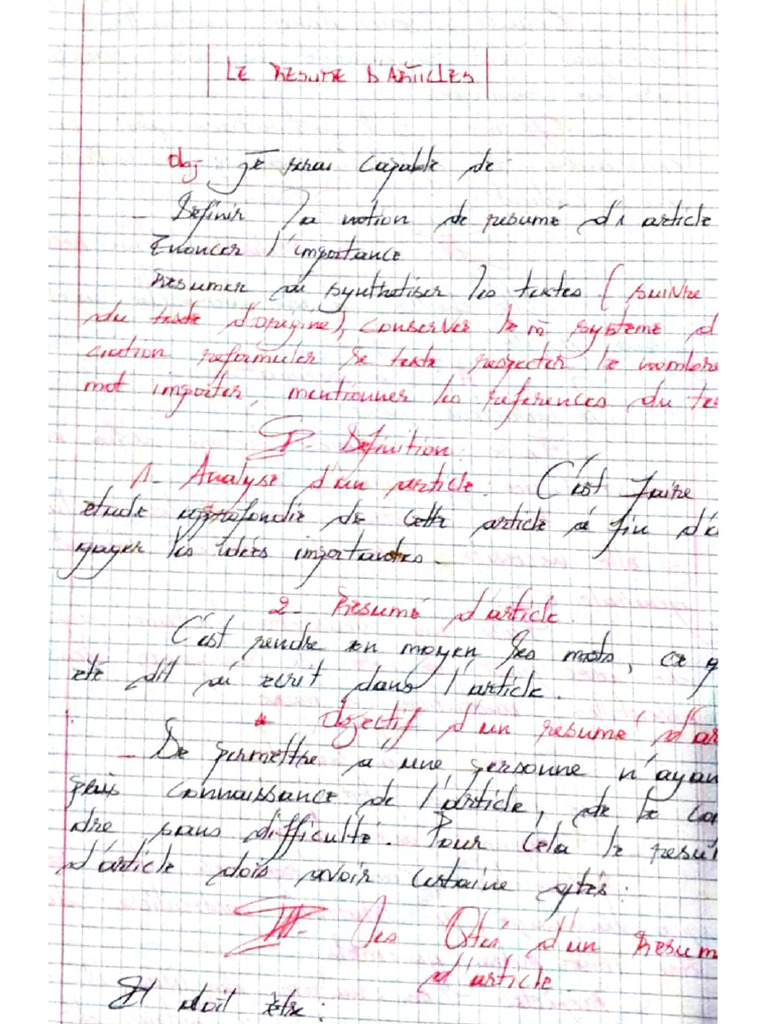 LE RESUME D'ARTICLES
Obj je serai capable de :
- Définir la notion de resumé d'1 article
Enoncer l'importance
Resumer ou synthetiser les textes ( suivre
du texte d'origine), conserver le m̄ système d
ciation reformuler le texte respecter le nombre
mot importer, mentionner les references du te
I- Definition
1- Analyse d'un article. C'est faire
etude approfondie de cette article à fin d'
gager les idées importantes -
2- Resumé d'article.
C'est rendre en moyen des mots, ce q
été dit ou écrit dans l'article.
* Objectif d'un resumé d'ar
- De permettre à une personne n'ayan
pris connaissance de l'article, de le co
dre sans difficulté. Pour cela le resu
d'article dois avoir certaine qtés :
III- Les Qtés d'un Resum
d'article.
Il doit être :